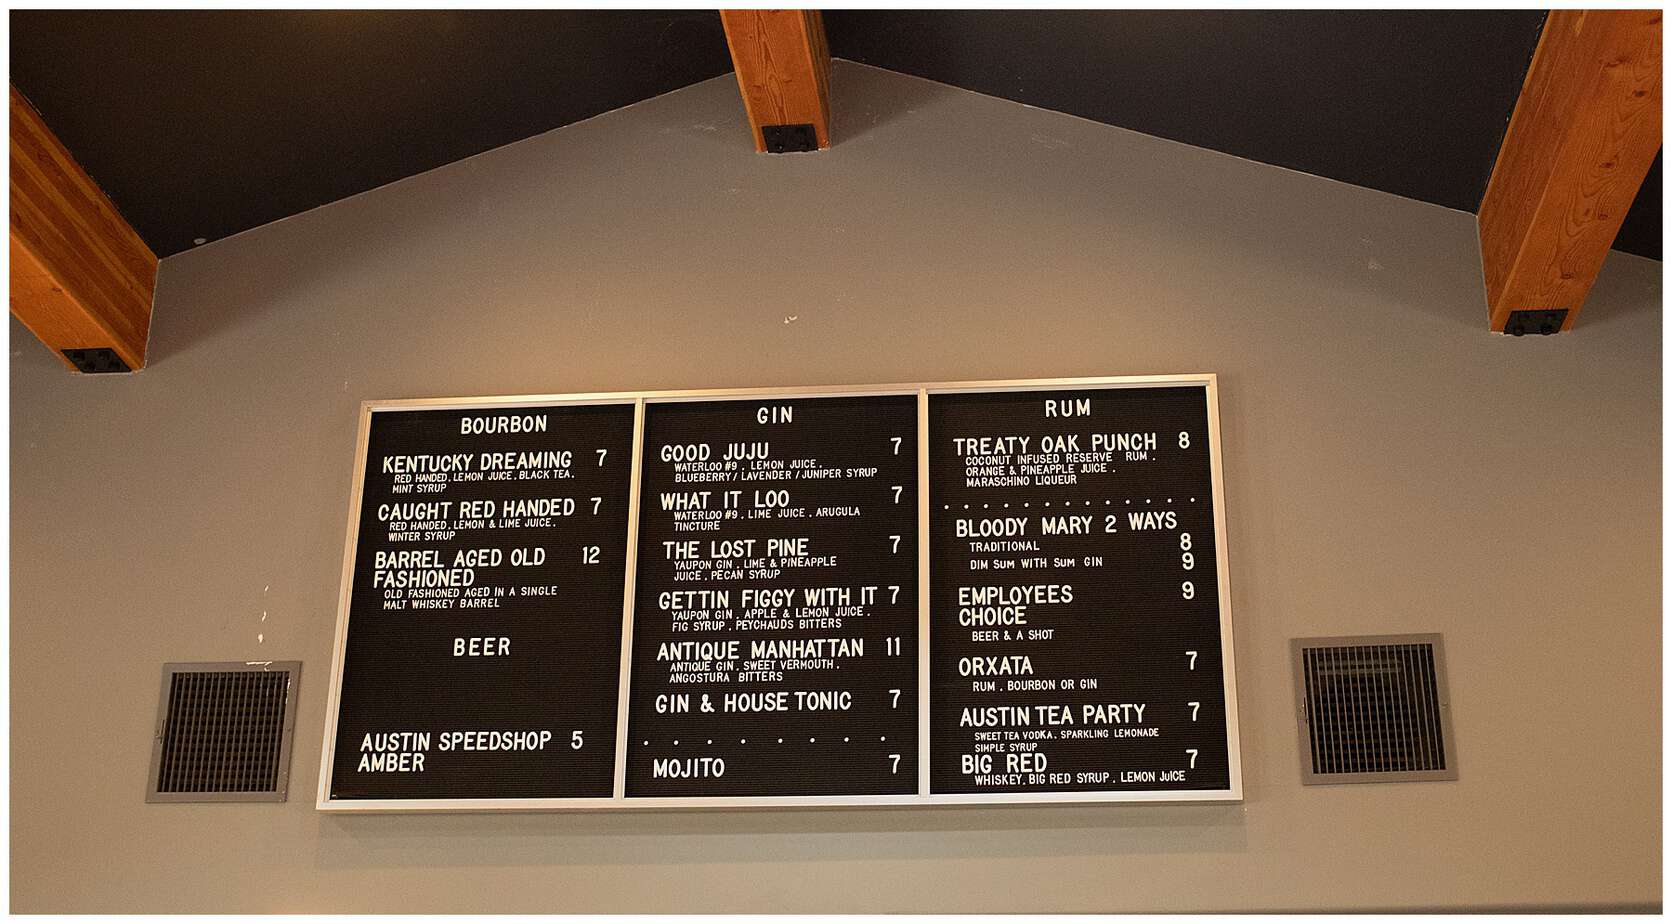 BOURBON
KENTUCKY DREAMING 7
RED HANDED. LEMON JUICE. BLACK TEA.
MINT SYRUP
CAUGHT RED HANDED 7
RED HANDED. LEMON & LIME JUICE.
WINTER SYRUP
BARREL AGED OLD 12
FASHIONED
OLD FASHIONED AGED IN A SINGLE
MALT WHISKEY BARREL
BEER
AUSTIN SPEEDSHOP 5
AMBER
GIN
GOOD JUJU 7
WATERLOO #9 . LEMON JUICE .
BLUEBERRY / LAVENDER / JUNIPER SYRUP
WHAT IT LOO 7
WATERLOO #9 . LIME JUICE . ARUGULA
TINCTURE
THE LOST PINE 7
YAUPON GIN . LIME & PINEAPPLE
JUICE . PECAN SYRUP
GETTIN FIGGY WITH IT 7
YAUPON GIN . APPLE & LEMON JUICE .
FIG SYRUP . PEYCHAUDS BITTERS
ANTIQUE MANHATTAN 11
ANTIQUE GIN . SWEET VERMOUTH .
ANGOSTURA BITTERS
GIN & HOUSE TONIC 7
. . . . . . . .
MOJITO 7
RUM
TREATY OAK PUNCH 8
COCONUT INFUSED RESERVE RUM .
ORANGE & PINEAPPLE JUICE .
MARASCHINO LIQUEUR
. . . . . . . . . . . .
BLOODY MARY 2 WAYS
TRADITIONAL 8
DIM SUM WITH SUM GIN 9
EMPLOYEES 9
CHOICE
BEER & A SHOT
ORXATA 7
RUM . BOURBON OR GIN
AUSTIN TEA PARTY 7
SWEET TEA VODKA. SPARKLING LEMONADE
SIMPLE SYRUP
BIG RED 7
WHISKEY. BIG RED SYRUP . LEMON JUICE